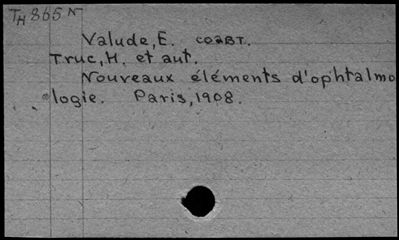 TH 865 N
Valude, E. COABT.
Truc, H. et aut.
Nouveaux éléments d'ophtalmo
logie. Paris, 1908.